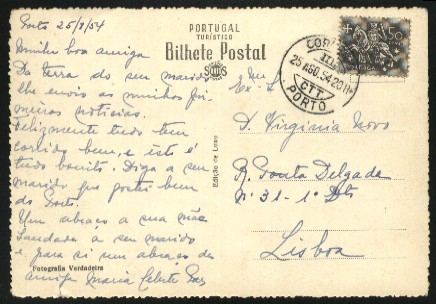 Porto 25/8/54
Minha boa amiga
Da terra do seu marido
lhe envio as minhas pri
meiras noticias.
Felizmente tudo tem
corrido bem, e isto é
tudo bonito. Diga a seu
marido que gostei bem
do Porto.
Um abraço a sua mãe
Saudades a seu marido
e para si um abraço da
amiga Maria Celeste
PORTUGAL
TURÍSTICO
Bilhete Postal
Edição de Luxo
Fotografia Verdadeira
50
25 AGO. 54
CTT
PORTO
Ex.
D. Virginia Novo
R. Ponta Delgada
nº 31-1º Dto
Lisboa